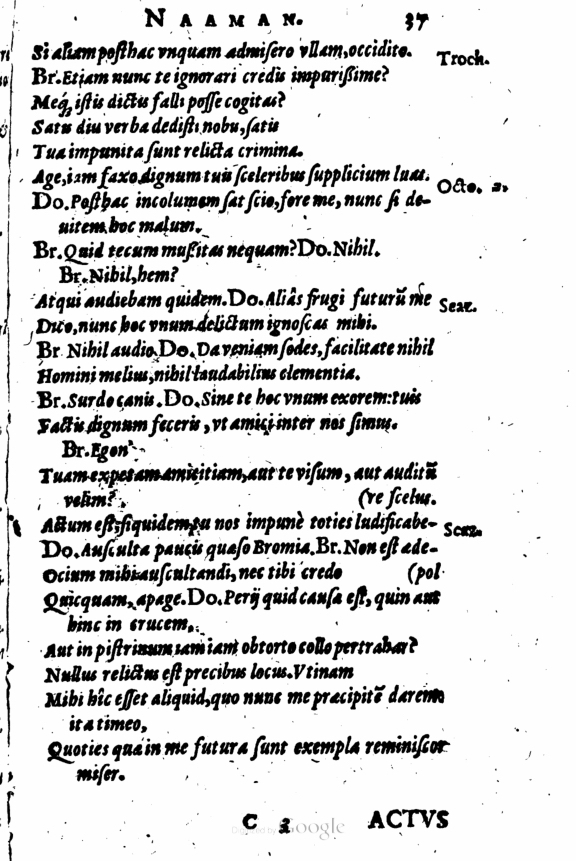 NAAMAN. 37
Si aliam posthac vnquam admisero vllam, occidito.
Troch.
Br. Etiam nunc te ignorari credis impurißime?
Meq́; istis dictis falli posse cogitas?
Satis diu verba dedisti nobis, satis
Tua impunita sunt relicta crimina.
Age, iam faxo dignum tuis sceleribus supplicium luas.
Octo. 2.
Do. Posthac incolumem sat scio, fore me, nunc si de-
uitem hoc malum.
Br. Quid tecum mußitas nequam? Do. Nihil.
Br. Nihil, hem?
Atqui audiebam quidem. Do. Aliâs frugi futurũ me
Senar.
Duco, nunc hoc vnum delictum ignoscas mihi.
Br. Nihil audio. Do. Da veniam sodes, facilitate nihil
Homini melius, nihil laudabilius clementia.
Br. Surdo canis. Do. Sine te hoc vnum exorem: tuis
Factis dignum feceris, vt amici inter nos simus.
Br. Egon'
Tuam expetam amicitiam, aut te visum, aut auditũ
velim? (re scelus.
Actum est, siquidem tu nos impunè toties ludificabe-
Do. Ausculta paucis quaso Bromia. Br. Non est ade-
Ocium mihi auscultandi, nec tibi credo (pol
Quicquam, apage. Do. Perij quid causa est, quin aut
hinc in crucem,
Aut in pistrinum iam iam obtorto collo pertrahar?
Nullus relictus est precibus locus. Vtinam
Mihi hîc esset aliquid, quo nunc me præcipitẽ darem
ita timeo,
Quoties qua in me futura sunt exempla reminiscor
miser.
C 3 ACTVS
Google